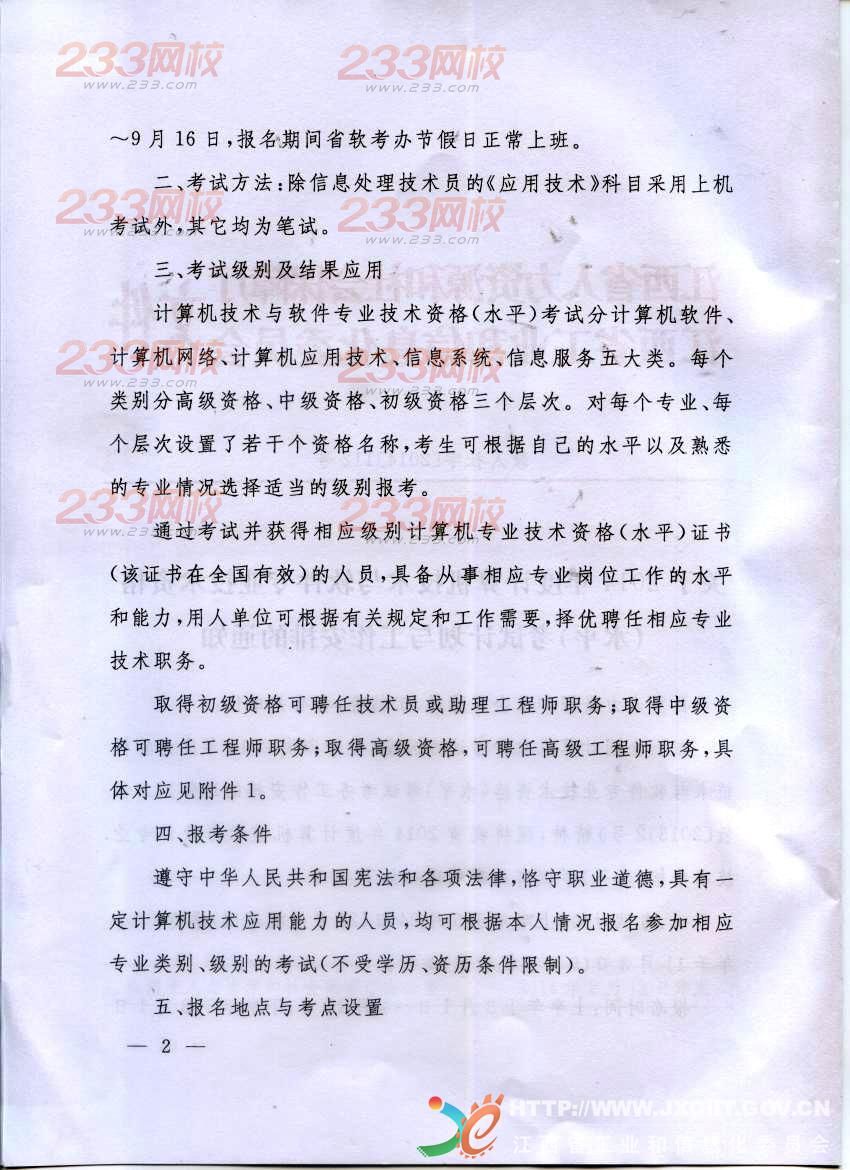 233网校 233网校
www.233.com www.233.com
～9月16日,报名期间省软考办节假日正常上班。
二、考试方法:除信息处理技术员的《应用技术》科目采用上机
考试外,其它均为笔试。
233网校 233网校
www.233.com www.233.com
三、考试级别及结果应用
计算机技术与软件专业技术资格(水平)考试分计算机软件、
计算机网络、计算机应用技术、信息系统、信息服务五大类。每个
233网校 233网校
www.233.com www.233.com
类别分高级资格、中级资格、初级资格三个层次。对每个专业、每
个层次设置了若干个资格名称,考生可根据自己的水平以及熟悉
的专业情况选择适当的级别报考。
233网校 233网校
www.233.com www.233.com
通过考试并获得相应级别计算机专业技术资格(水平)证书
(该证书在全国有效)的人员,具备从事相应专业岗位工作的水平
和能力,用人单位可根据有关规定和工作需要,择优聘任相应专业
技术职务。
取得初级资格可聘任技术员或助理工程师职务;取得中级资
格可聘任工程师职务;取得高级资格,可聘任高级工程师职务,具
体对应见附件1。
四、报考条件
遵守中华人民共和国宪法和各项法律,恪守职业道德,具有一
定计算机技术应用能力的人员,均可根据本人情况报名参加相应
专业类别、级别的考试(不受学历、资历条件限制)。
五、报名地点与考点设置
— 2 —
HTTP://WWW.JXCIIT.GOV.CN
江西省工业和信息化委员会